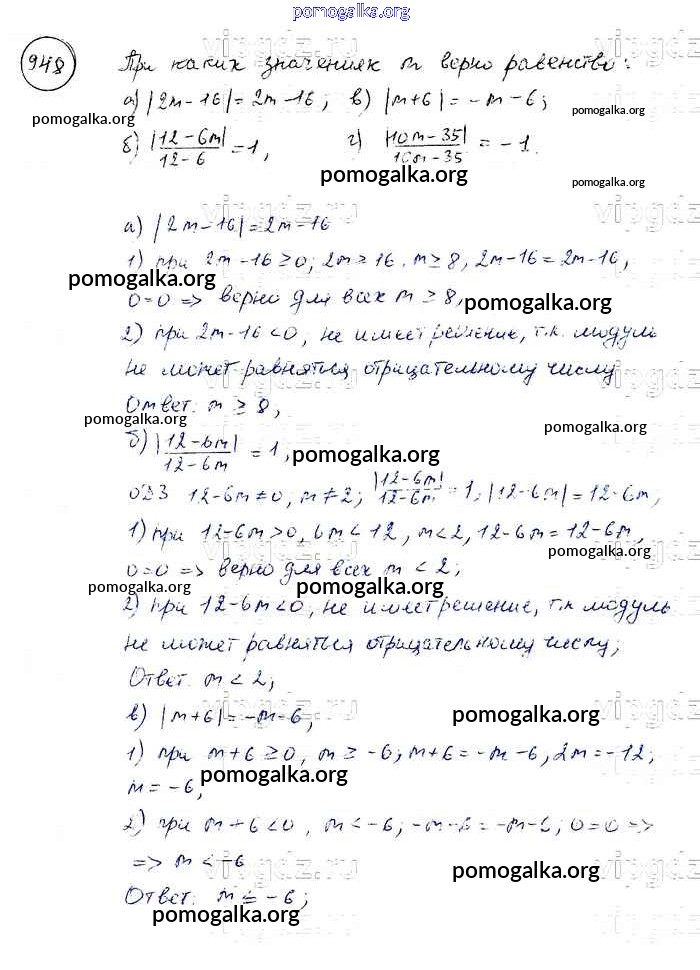 pomogalka.org
948
При каких значениях m верно равенство:
а) |2m-16| = 2m-16; в) |m+6| = -m-6;
pomogalka.org pomogalka.org
б) |12-6m|/12-6 = 1, г) |10m-35|/10m-35 = -1.
pomogalka.org pomogalka.org
vipgdz.ru
а) |2m-16| = 2m-16
1) при 2m-16 ≥ 0; 2m ≥ 16. m ≥ 8, 2m-16 = 2m-16,
pomogalka.org
0=0 => верно для всех m ≥ 8,
pomogalka.org
2) при 2m-16 < 0, не имеет решение, т.к. модуль
не может равняться отрицательному числу
Ответ: m ≥ 8,
pomogalka.org pomogalka.org
б) |12-6m|/12-6m = 1,
pomogalka.org
ОДЗ 12-6m ≠ 0, m ≠ 2; |12-6m|/12-6m = 1, |12-6m| = 12-6m,
1) при 12-6m > 0, 6m < 12, m < 2, 12-6m = 12-6m,
pomogalka.org
0=0 => верно для всех m < 2;
pomogalka.org pomogalka.org
2) при 12-6m < 0, не имеет решение, т.к модуль
не может равняться отрицательному числу;
Ответ. m < 2;
в) |m+6| = -m-6,
pomogalka.org
1) при m+6 ≥ 0, m ≥ -6; m+6 = -m-6, 2m = -12;
m = -6,
pomogalka.org
2) при m+6 < 0, m < -6; -m-6 = -m-6, 0=0 =>
=> m < -6
pomogalka.org
Ответ: m ≤ -6;
pomogalka.org